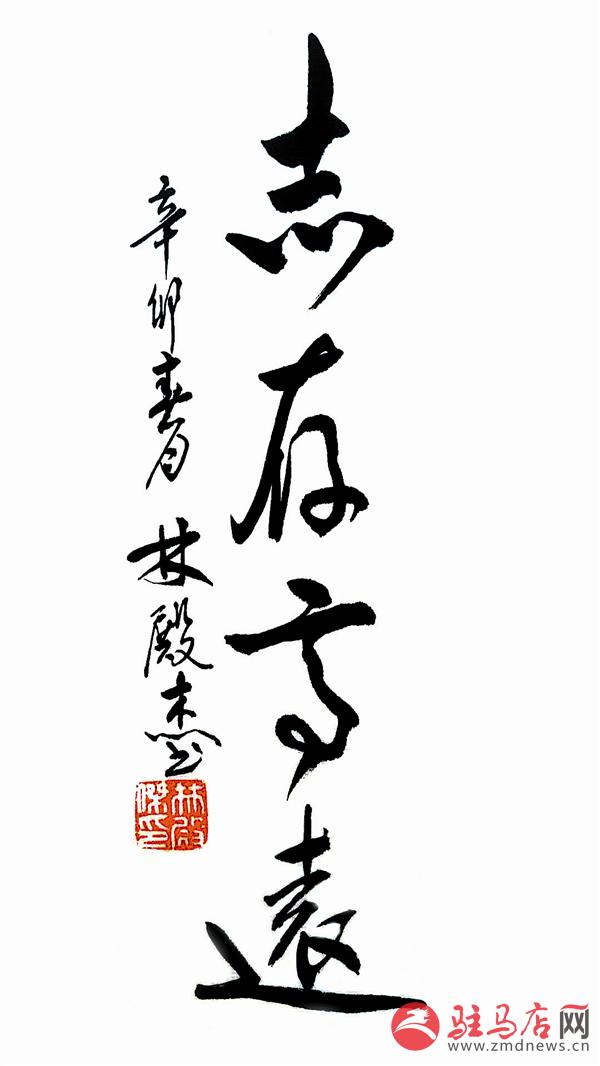 志存高遠
辛卯春月 林殿杰
林殿傑印
驻马店网
www.zmdnews.cn